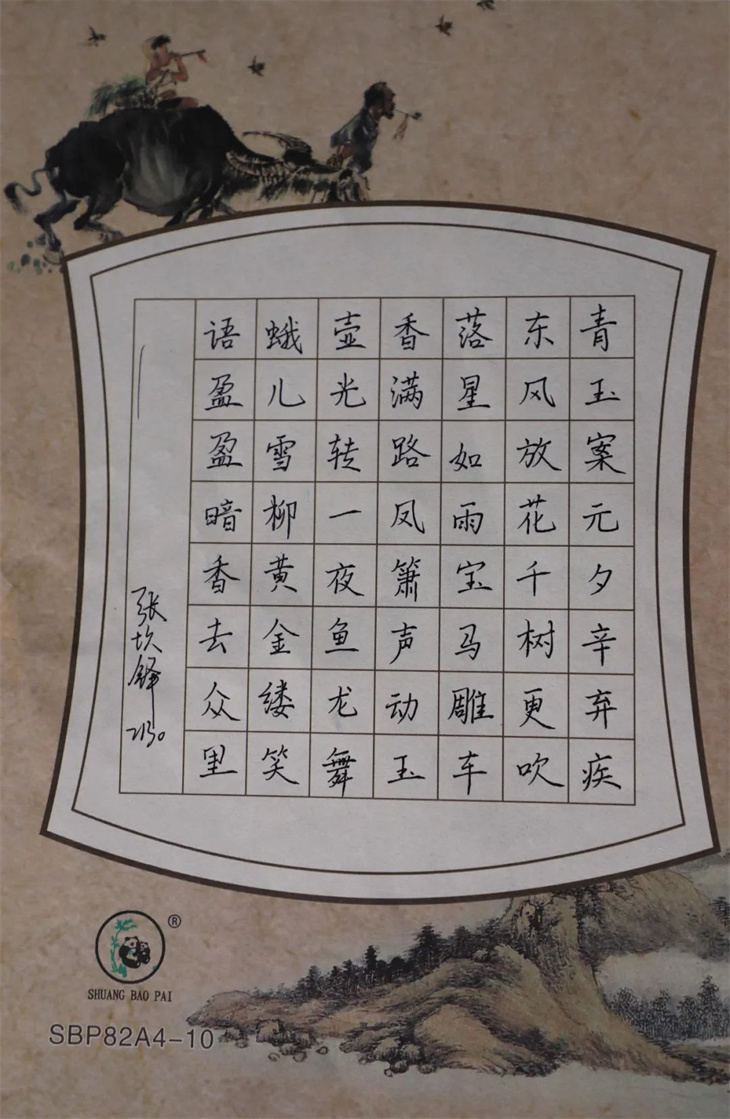 青玉案元夕辛弃疾
东风放花千树更吹
落星如雨宝马雕车
香满路凤箫声动玉
壶光转一夜鱼龙舞
蛾儿雪柳黄金缕笑
语盈盈暗香去众里
SHUANG BAO PAI
®
SBP82A4-10